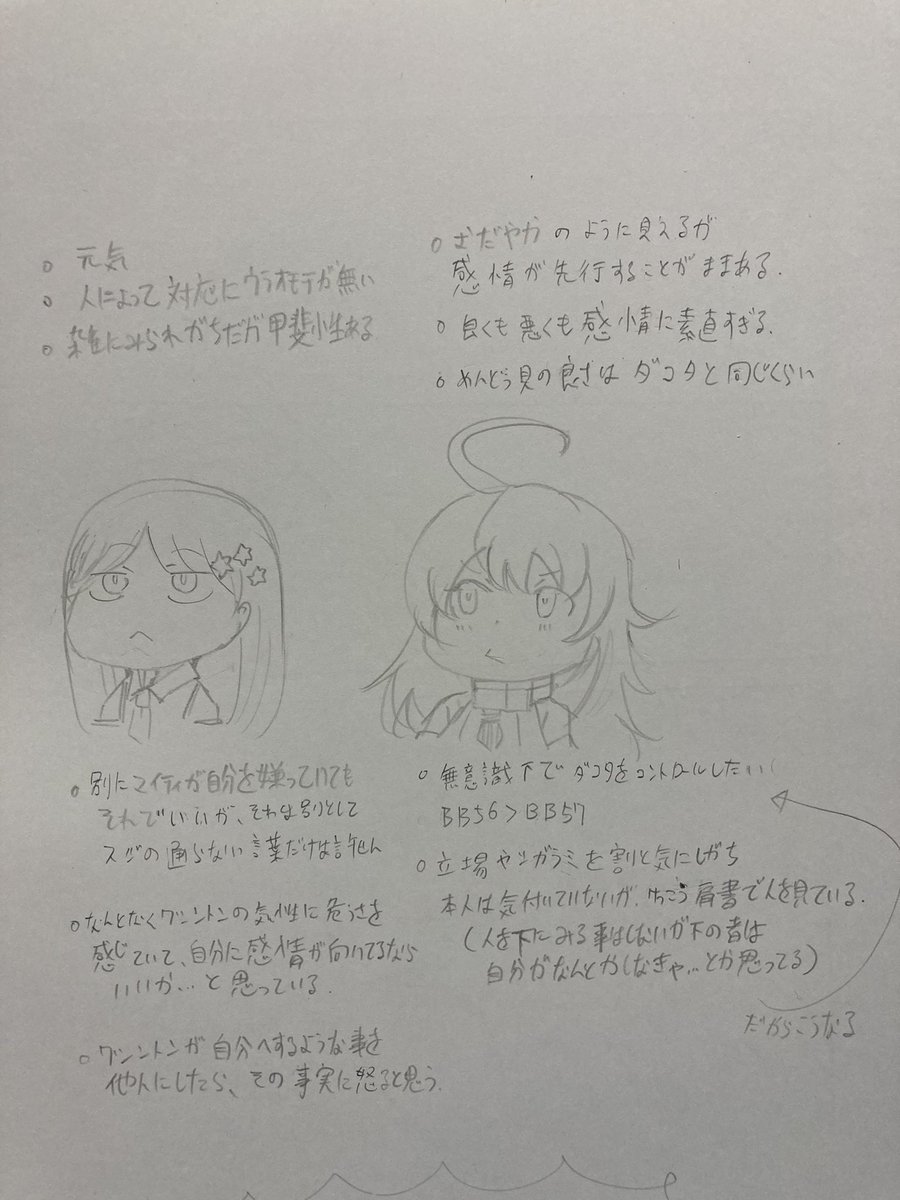 ○ 元気
○ 人によって対応にウラオモテが無い
○ 雑にみられがちだが甲斐性ある
○ おだやかのように見えるが
感情が先行することがままある.
○ 良くも悪くも感情に素直すぎる.
○ めんどう見の良さはダコタと同じくらい
○ 別にマイティが自分を嫌っていても
それでいいが、それは別として
スジの通らない言葉だけは許せん
○ なんとなくワシントンの気性に危うさを
感じていて、自分に感情が向いてるなら
いいか…と思っている.
○ ワシントンが自分へするような事を
他人にしたら、その事実に怒ると思う.
○ 無意識下でダコタをコントロールしたい
BB56>BB57
○ 立場やシガラミを割と気にしがち
本人は気付いていないが、けっこう肩書で人を見ている.
(人を下にみる事はしないが下の者は
自分がなんとかしなきゃ…とか思ってる)
だからこうなる